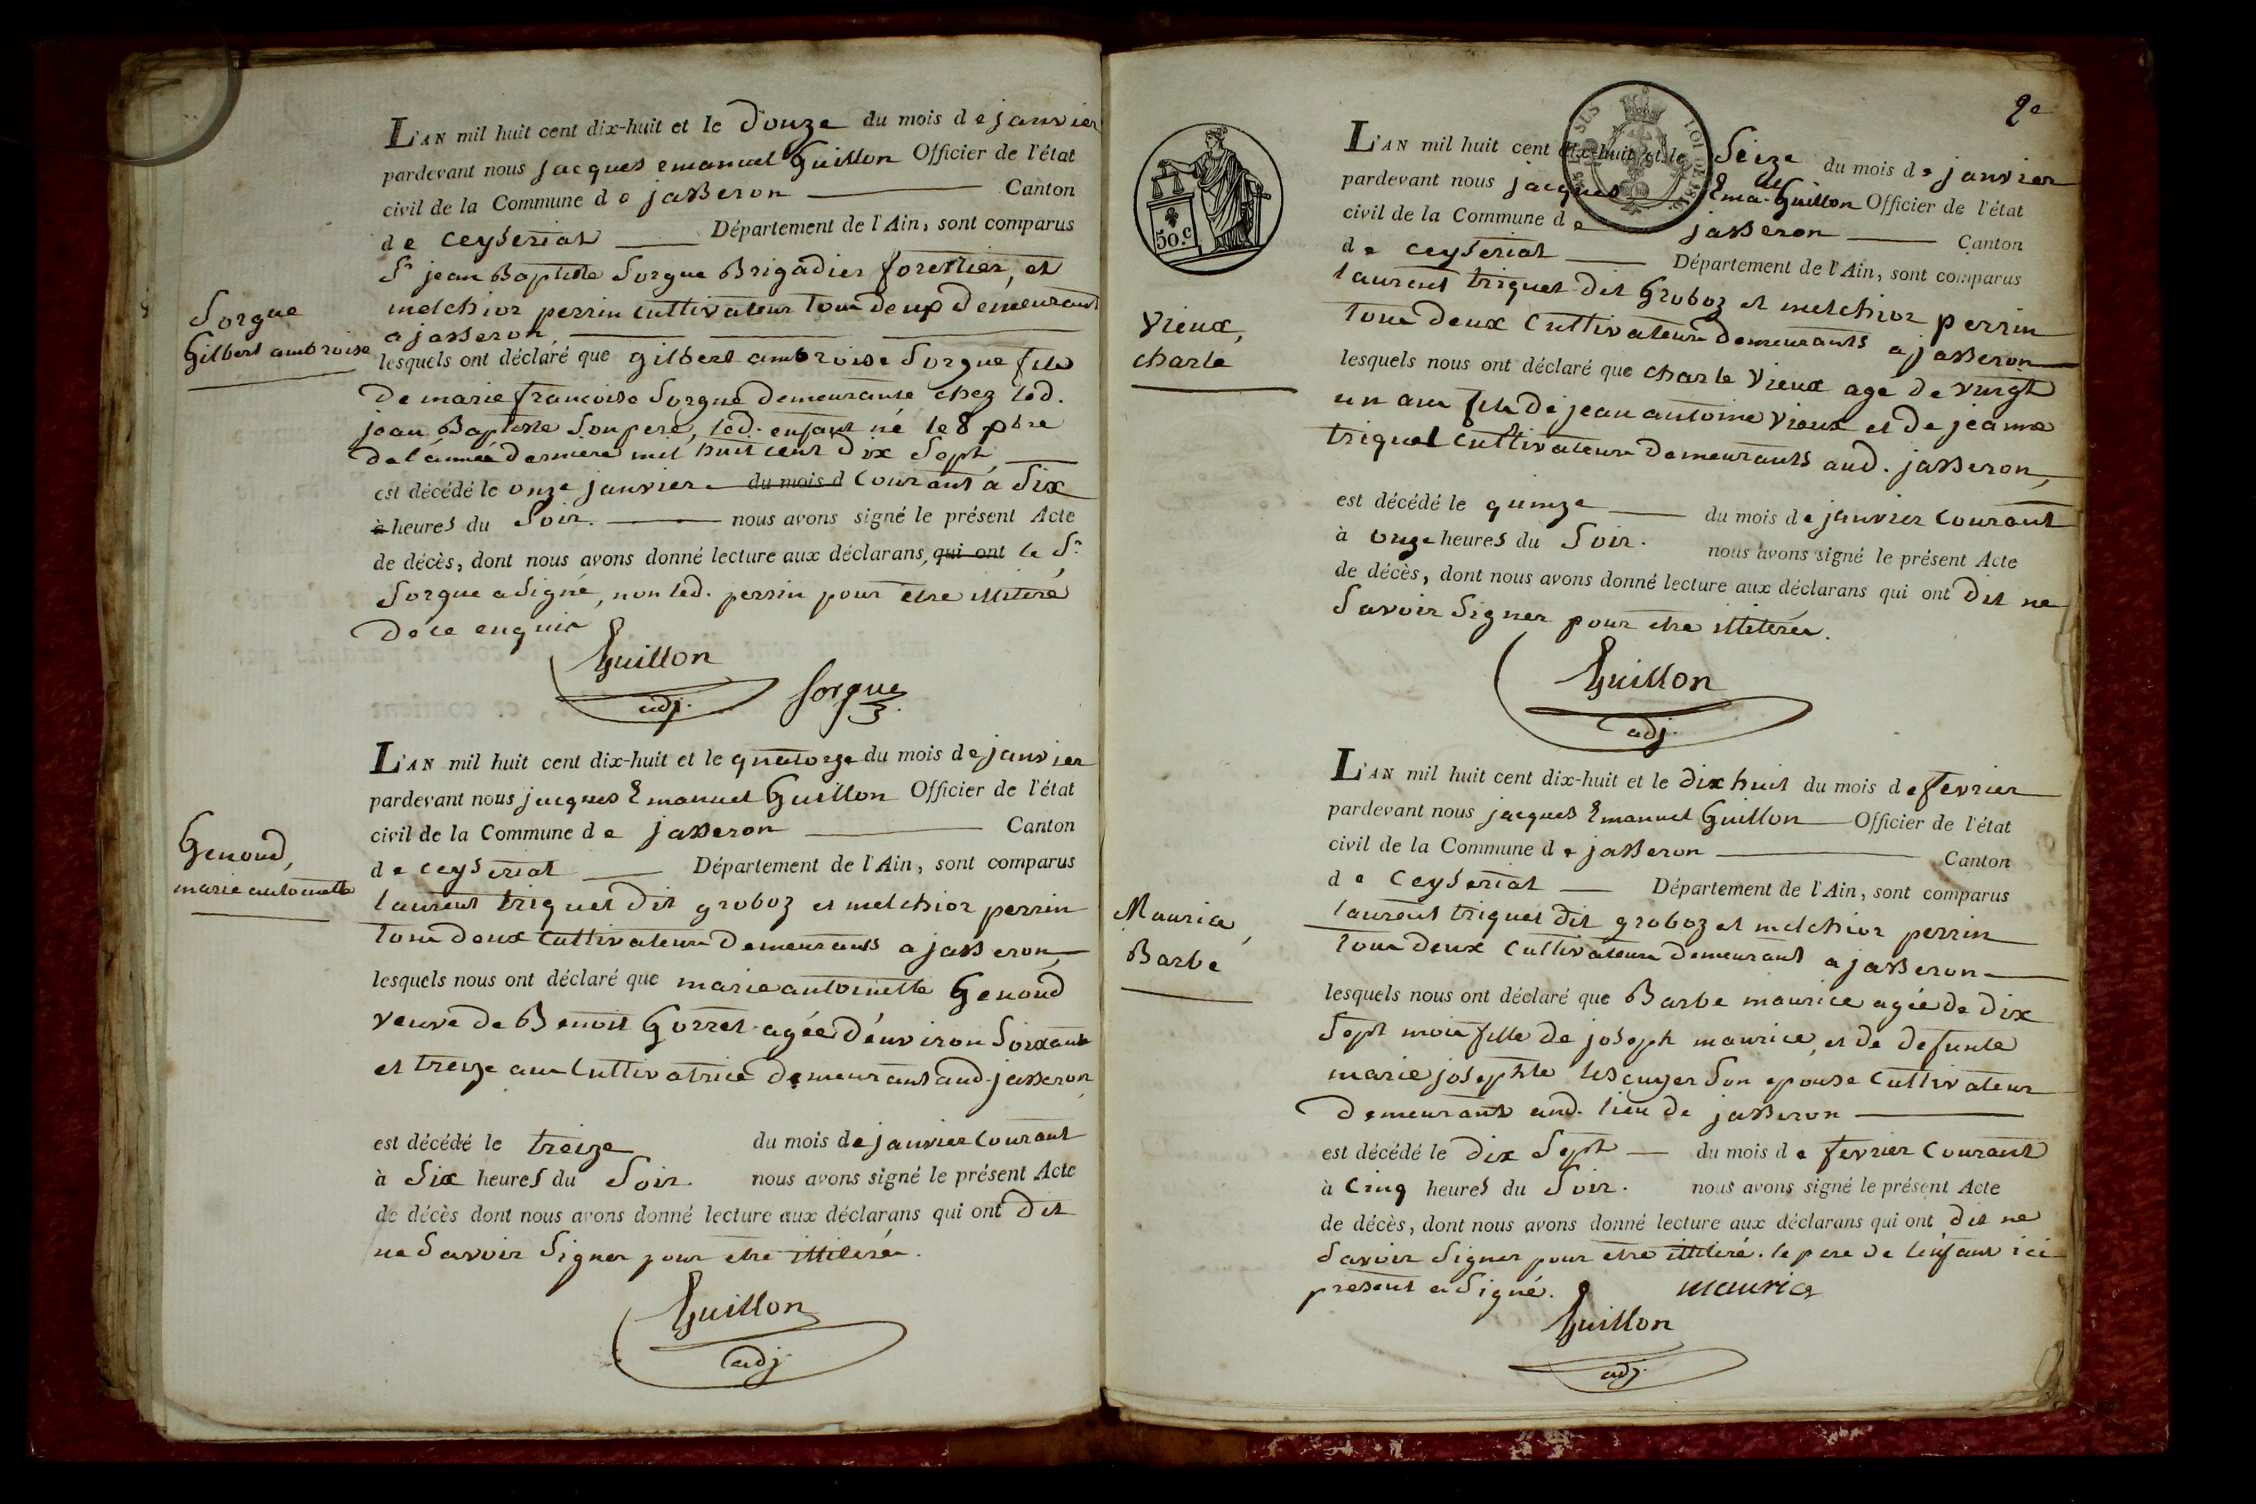 L'AN mil huit cent dix-huit et le Douze du mois de janvier
pardevant nous jacques emanuel Guillon Officier de l'état
civil de la Commune de jasseron Canton
de ceyseriat Département de l'Ain, sont comparus
Sr jean Baptiste Sorgue Brigadier forestier, et
melchior perrin cultivateur tous deux demeurant
a jasseron,
Sorgue
Gilbert ambroise
lesquels ont déclaré que gilbert ambroise Sorgue fils
de marie francoise Sorgue demeurante chez led.
jean Baptiste Son pere, led. enfant né le 8 
de l'année derniere mil huit cent dix Sept
est décédé le onze janvier du mois d courant a Six
à heures du Soir. nous avons signé le présent Acte
de décès, dont nous avons donné lecture aux déclarans, qui ont le Sr
Sorgue a Signé, non led. perrin pour être illitéré
de ce enquis
Guillon
adj.
Sorgue
L'AN mil huit cent dix-huit et le quatorze du mois de janvier
pardevant nous jacques Emanuel Guillon Officier de l'état
civil de la Commune de jasseron Canton
Genoud,
marie antoinette
de ceyseriat Département de l'Ain, sont comparus
laurent triquet dit groboz et melchior perrin
tous deux cultivateurs demeurants a jasseron,
lesquels nous ont déclaré que marie antoinette Genoud
veuve de Benoit Gorret agée d'environ Soixante
et treize ans cultivatrice demeurant aud. jasseron,
est décédé le treize du mois de janvier courant
à Six heures du Soir. nous avons signé le présent Acte
de décès dont nous avons donné lecture aux déclarans qui ont dit
ne Savoir Signer pour etre illiterés.
Guillon
adj.
2e
SUS LOI DE 1816
50.c
L'AN mil huit cent dix-huit et le Seize du mois de janvier
pardevant nous jacques Ema.el Guillon Officier de l'état
civil de la Commune de jasseron Canton
de ceyseriat Département de l'Ain, sont comparus
laurent triquet dit Groboz et melchior perrin
tous deux cultivateurs demeurants a jasseron
Vieux,
charle
lesquels nous ont déclaré que charle Vieux age de vingt
un ans fils de jean antoine Vieux et de jeanne
triquet cultivateurs demeurants aud. jasseron,
est décédé le quinze du mois de janvier courant
à onze heures du Soir. nous avons signé le présent Acte
de décès, dont nous avons donné lecture aux déclarans qui ont dit ne
Savoir Signer pour etre illiterés.
Guillon
adj.
L'AN mil huit cent dix-huit et le dix huit du mois de fevrier
pardevant nous jacques Emanuel Guillon Officier de l'état
civil de la Commune de jasseron Canton
de Ceyseriat Département de l'Ain, sont comparus
laurent triquet dit groboz et melchior perrin
tous deux cultivateurs demeurant a jasseron
Maurice,
Barbe
lesquels nous ont déclaré que Barbe maurice agée de dix
Sept mois fille de joseph maurice, et de defunte
marie josephte lescuyer Son epouse cultivateur
demeurant aud. lieu de jasseron
est décédé le dix Sept du mois de fevrier courant
à Cinq heures du Soir. nous avons signé le présent Acte
de décès, dont nous avons donné lecture aux déclarans qui ont dit ne
Savoir Signer pour etre illiteré. le pere de l'enfant ici
present a Signé. maurice
Guillon
adj.